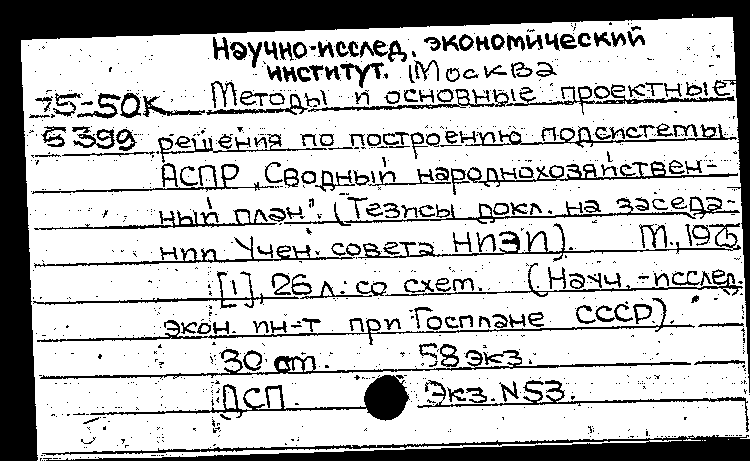 Научно-исслед. экономический
институт. Москва
75-50к Методы и основные проектные
5399 решения по построению подсистемы
АСПР „Сводный народнохозяйствен-
ный план". (Тезисы докл. на заседа-
нии Учен. совета НИЭИ). М., 1975
[1], 26 л. со схем. (Науч.-исслед.
экон. ин-т при Госплане СССР).
30 от. 58 экз.
ДСП. Экз. N53.